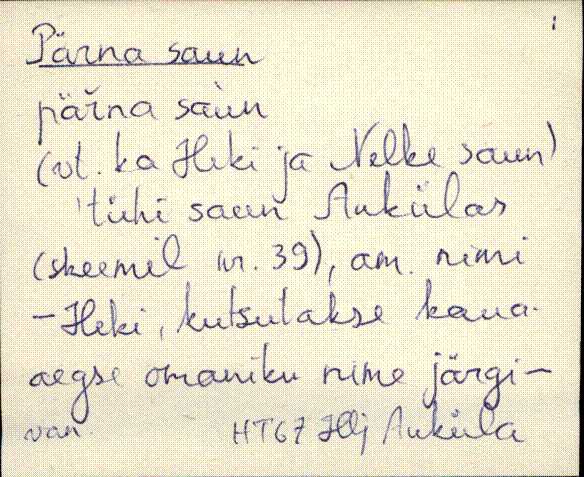 Pärna saun
pär̆na saùn
(vt. ka Heki ja Nelke saun)
'tühi saun Aukülas
(skeemil nr. 39), am. nimi
- Heki, kutsutakse kaua-
aegse omaniku nime järgi -
van HT67 Hlj Auküla